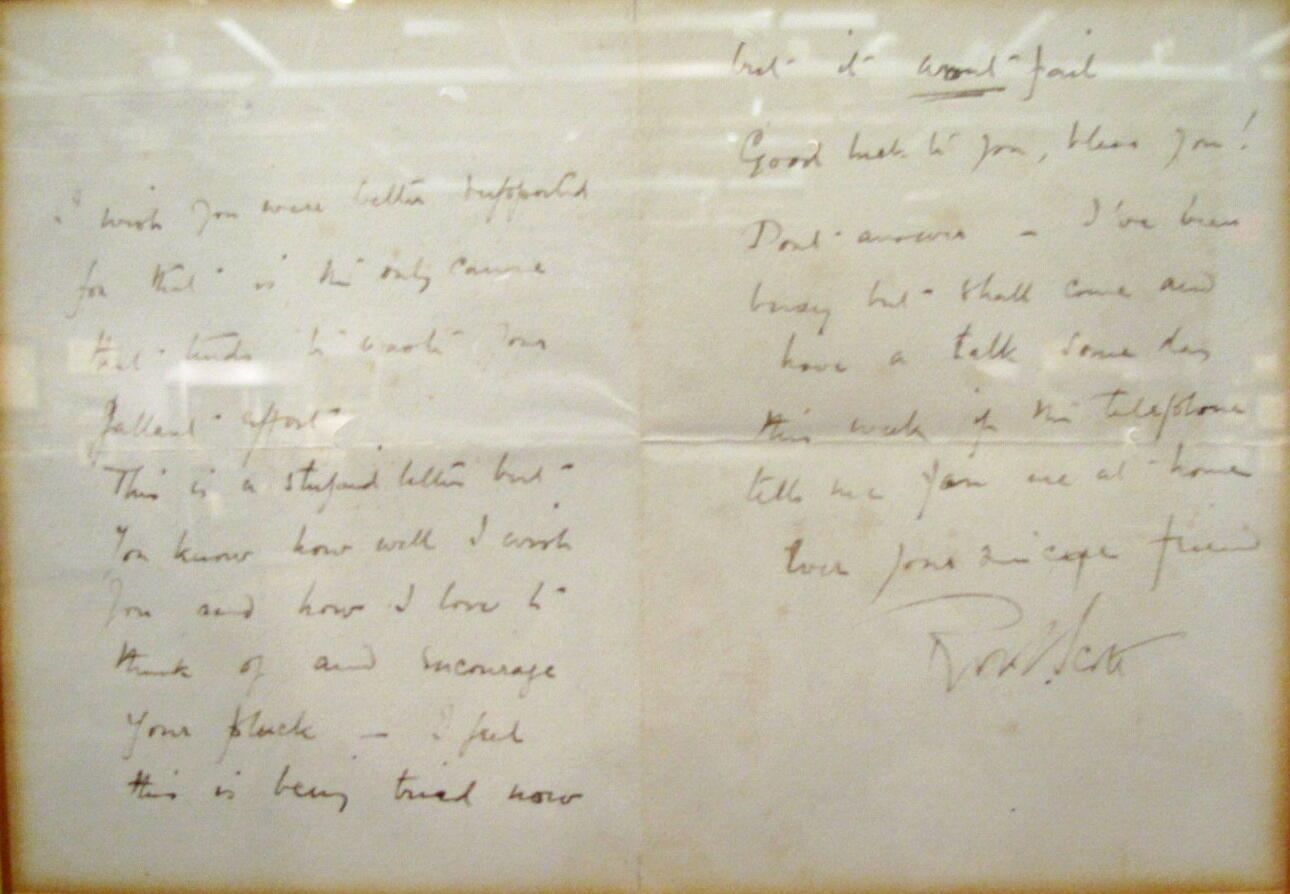 I wish you were better supported
for that is the only cause
that tends to waste your
gallant effort
This is a stupid letter but
You know how well I wish
you and how I love to
think of and encourage
Your pluck — I feel
this is being tried now
but it wont fail
Good luck to you, bless you!
Dont answer — I've been
busy but shall come and
have a talk some day
this week if the telephone
tells me you are at home
Ever your sincere friend
Scott